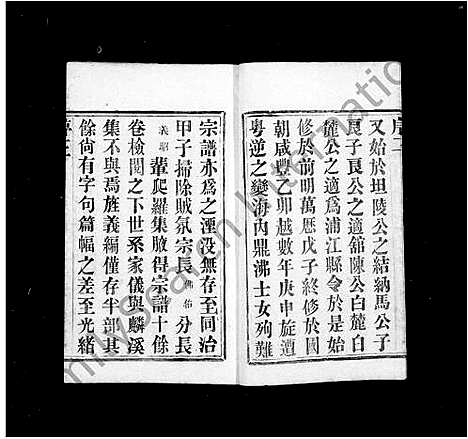 又始於坦陵公之結納馬公子
良子良公之適舘陳公白麓白
麓公之適為浦江縣令於是始
修於前明萬歷戊子終修於國
朝咸豐乙卯越數年庚申旋遭
粵逆之變海內鼎沸士女殉難
宗譜亦為之湮没無存至同治
甲子掃除賊氛宗長佛佑分長
義昭輩爬羅集腋得宗譜十餘
卷檢閱之下世系家儀與麟溪
集不與焉旌義編僅存半部其
餘尚有字句篇幅之差至光緒